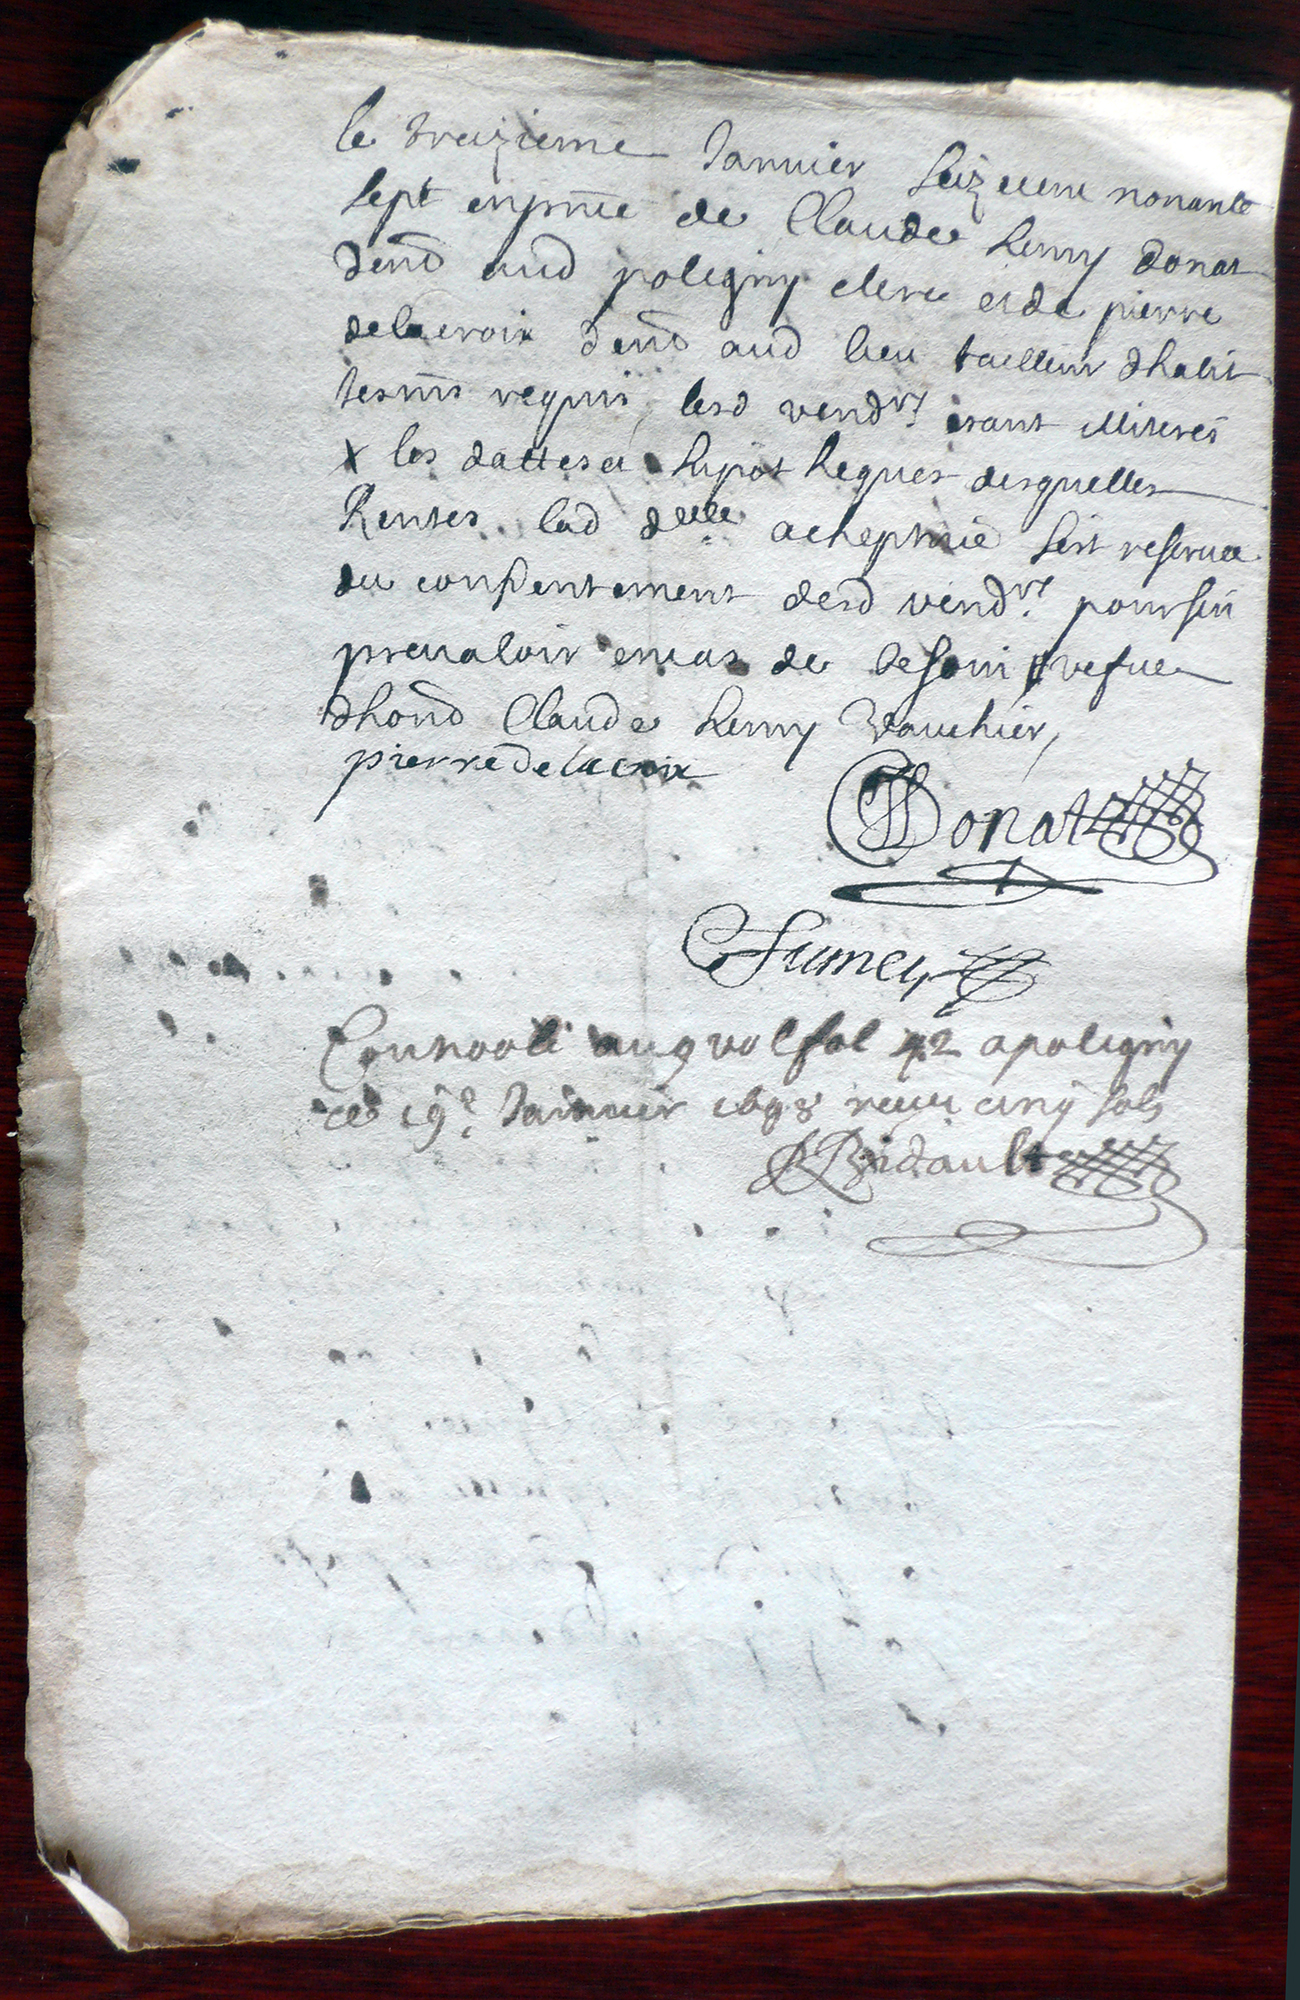 le treizieme Janvier seiz cens nonante
sept enpñce de Claude henry donat
dem̃ aud poligny clerc et de pierre
delacroix dem̃ aud lieu tailleur dhabit
tesm̃s requis, lesd vendrs. estant illiterés
x les dattes et hypothheques desquelles
Rentes lad delle achept sest reservee
du consentement desd vendrs. pour sen
prevaloir encas de besoin vefue
dhond Claude henry Vauchier,
pierre de lacroix
CH Donat
C Fumey
Controolé au 9 vol fol 42 a poligny
ce 19e Janvier 1698 receu cinq sols
Bidault